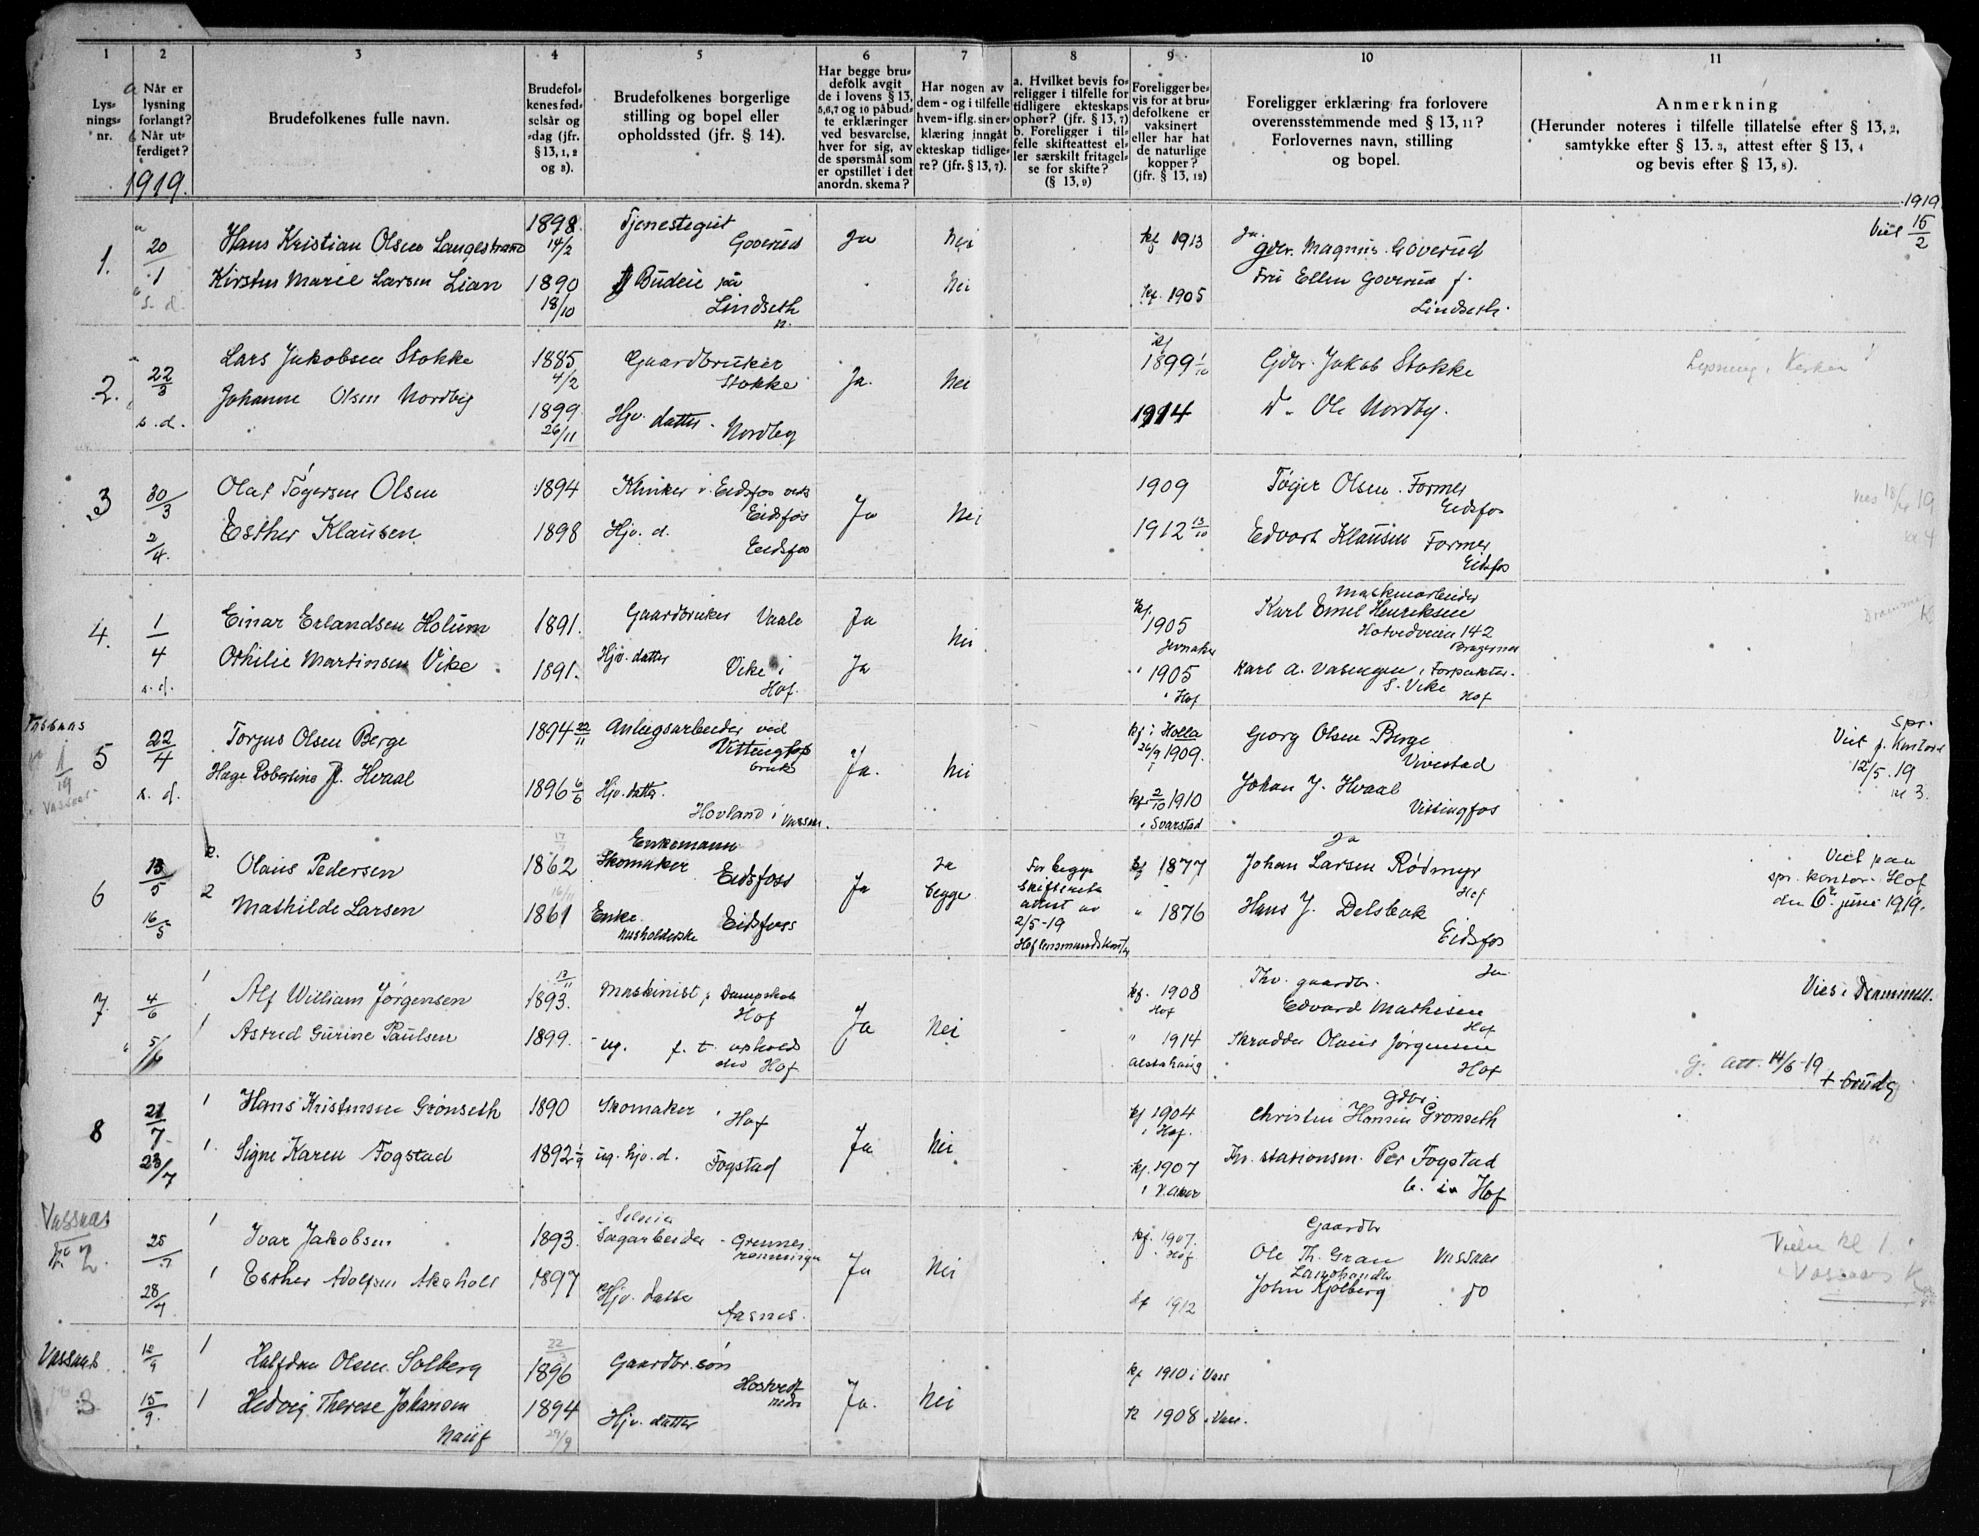 1 2 3 4 5 6 7 8 9 10 11
Lys-
nings-
nr.
Når er
lysning
forlangt?
Når ut-
ferdiget?
1919.
Brudefolkenes fulle navn.
Brudefol-
kenes fød-
selsår og
-dag (jfr.
§ 13, 1, 2
og 3).
Brudefolkenes borgerlige
stilling og bopel eller
opholdssted (jfr. § 14).
Har begge bru-
defolk avgit
de i lovens § 13,
5,6,7 og 10 påbud-
te erklæringer
ved besvarelse,
hver for sig, av
de spørsmål som
er opstillet i det
anordn. skema?
Har nogen av
dem - og i tilfelle
hvem - iflg. sin er-
klæring inngått
ekteskap tidlige-
re? (jfr. § 13, 7).
a. Hvilket bevis fo-
religger i tilfelle for
tidligere ekteskaps
ophør? (jfr. § 13, 7)
b. Foreligger i til-
felle skifteattest el-
ler særskilt fritagel-
se for skifte?
(§ 13, 9)
Foreligger be-
vis for at bru-
defolkene er
vaksinert
eller har hat
de naturlige
kopper?
(jfr. § 13, 12)
Foreligger erklæring fra forlovere
overensstemmende med § 13, 11?
Forlovernes navn, stilling
og bopel.
Anmerkning
(Herunder noteres i tilfelle tillatelse efter § 13, 2,
samtykke efter § 13, 3, attest efter § 13, 4
og bevis efter § 13, 8).
1919
1. 20/1 Hans Kristian Olsen Langestrand 1898. 14/2 Tjenestegut Goverud Ja Nei kf 1913 Ja. gdbr. Magnus Goverud Viet 15/2
s. d. Kirsten Marie Larsen Lian 1890 18/10 Budeie på Lindseth Nei kf. 1905 Fru Ellen Goverud
Lindseth.
2. 22/3 Lars Jakobsen Stokke 1885 4/2 Gaardbruker Stokke Ja. Nei kf 1899 1/10 Gdbr. Jakob Stokke Lysning i Kirken
s. d. Johanne Olsen Nordby 1899 26/11 Hjv. datter. Nordby 1914 Ole Nordby.
3 30/3 Olaf Tøgersen Olsen 1894 Klinker v. Eidsfos verk Eidsfos Ja Nei 1909 Tøger Olsen. Former Eidsfos 19
2/4. Esther Klausen 1898 Hjv. d. Eidsfos 1912 13/10 Edvart Klausen Former Eidsfos
4. 1/4 Einar Erlandsen Holum 1891. Gaardbruker Vaale Ja Nei kf. 1905 Jevnaker Maskinarbeider Karl Emil Henriksen
Hotvedveien 142
Bragernes
s. d. Othilie Martinsen Vike 1891. Hjv. datter Vike i Hof. Ja 1905 i Hof Karl A. Vasengen, Forpakter. S. Vike Hof
Vassaas
1/19
Vassaas
5 22/4 Torjus Olsen Berge 1894 22/11 Anlegsarbeider ved Vittingfos bruk Ja. Nei kf i Holla 26/9 1909. Georg Olsen Berge Vivestad
Spr.
Viet p. Kontoret
12/5. 19
kl 3.
s. d. Hæge Robertine J. Hvaal 1896 6/6 Hjv. datter. Hovland i Vassaas. kf 2/10 1910 i Svarstad Johan J. Hvaal Vittingfos
6 13/5 2. Olaus Pedersen 1862 Enkemann Skomaker Eidsfoss Ja Ja begge
For begge
skifteretts
attest av
2/5-19
Hof lensmandskontor
kf 1877 Ja Johan Larsen Rødmyr Hof
Viet paa
spr. kontor. Hof
den 6te juni 1919.
16/5 2 Mathilde Larsen 1861 Enke. husholderske Eidsfoss " 1876 Hans J. Delebak Eidsfos
7. 4/6 1 Alf William Jørgensen 13/11 1893. Maskinist p. Dampskib Hof Ja Nei kf. 1908 Hof Thv. gaardbr. Ja Edvard Mathisen Hof Vies i Drammen.
5/6 1 Astrid Gurine Paulsen 1899. ug. f. t. ophold Hof " 1914 Alstahaug Skrædder Olaus Jørgensen Hof
Att. 14/6-19
8 21/7 1 Hans Kristensen Grønseth 1890 Skomaker i Hof Ja Nei kf 1904 i Hof. gdbr. Christen Hansen Grønseth
23/7 1. Signe Karen Fogstad 1892 1/9 ug. hjv. d. Fogstad kf. 1907 i V. Aker Fh. stationsm. Per Fogstad b. i Hof
Vassaas
No 2.
25/7 1 Ivar Jakobsen 1893. Selveier Sagarbeider Grennesrønningen Ja Nei kf. 1907. Hof Gaardbr Ole Th. Gran Vassaas
28/7 1 Esther Adolfsen Akaholt 1897 Hjv. datter Aasnes. kf 1912 Landhandler John Kjølberg do
Vassaas
3
12/9 1 Halfdan Olsen Solberg 22/3 1896 Gaardbr. søn Hostvedt nedre Ja. Nei kf 1910 i Vass
15/9. 1 Hedvig Therese Johansen 1894 29/9 Hjv. datter k 1908 i Vass.